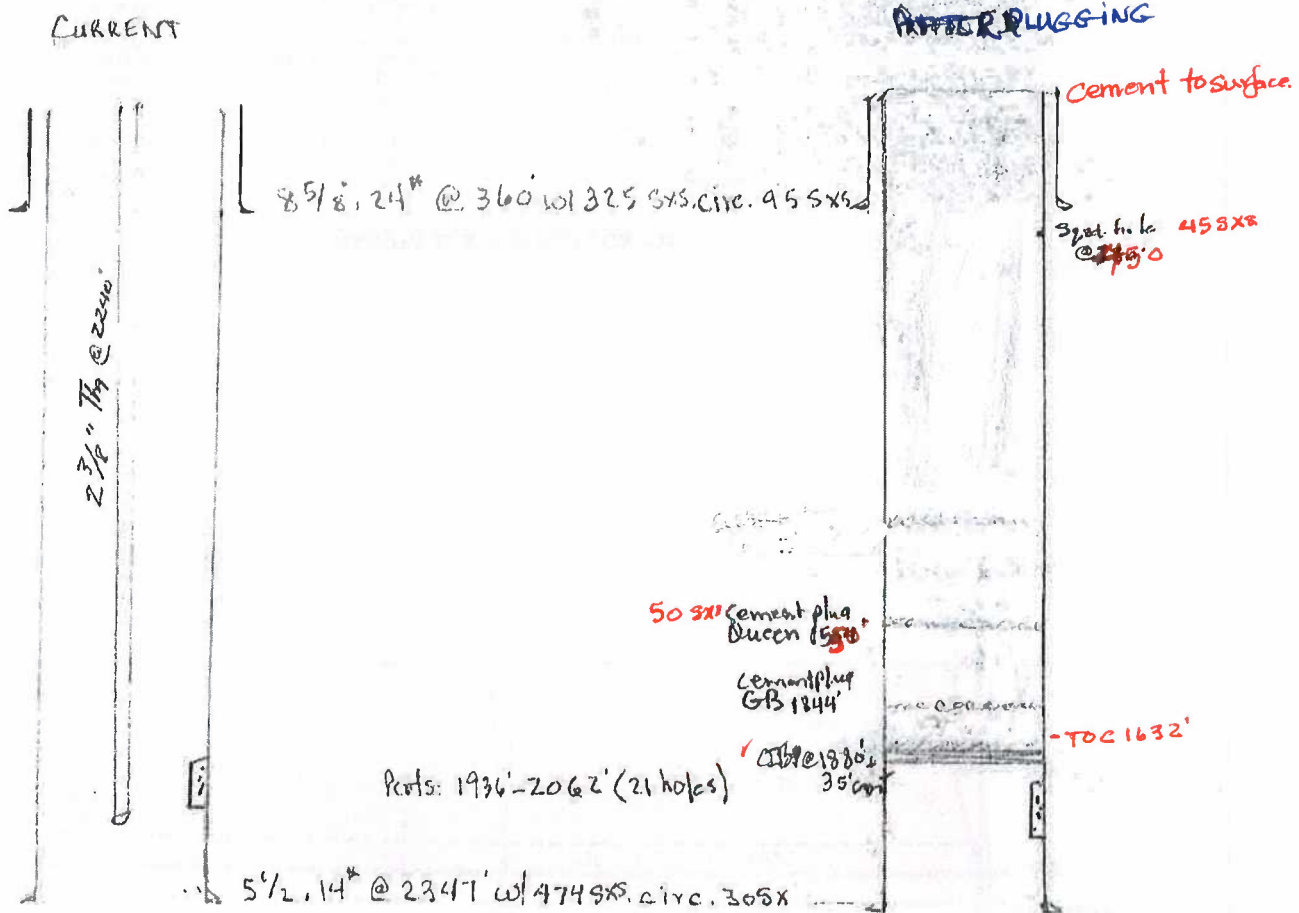 CURRENT
PLUGGING
Cement to surface.
8 5/8", 24# @ 360' w/ 325 sxs. circ. 95 sxs
45 sxs
@
2 3/8" Tbg @ 2240'
50 sxs cement plug
Queen
cement plug
GB 1844'
- TOC 1632'
@ 1880'
35'
Perfs: 1936'-2062' (21 holes)
5 1/2, 14# @ 2347' w/ 474 sxs. circ. 30sx